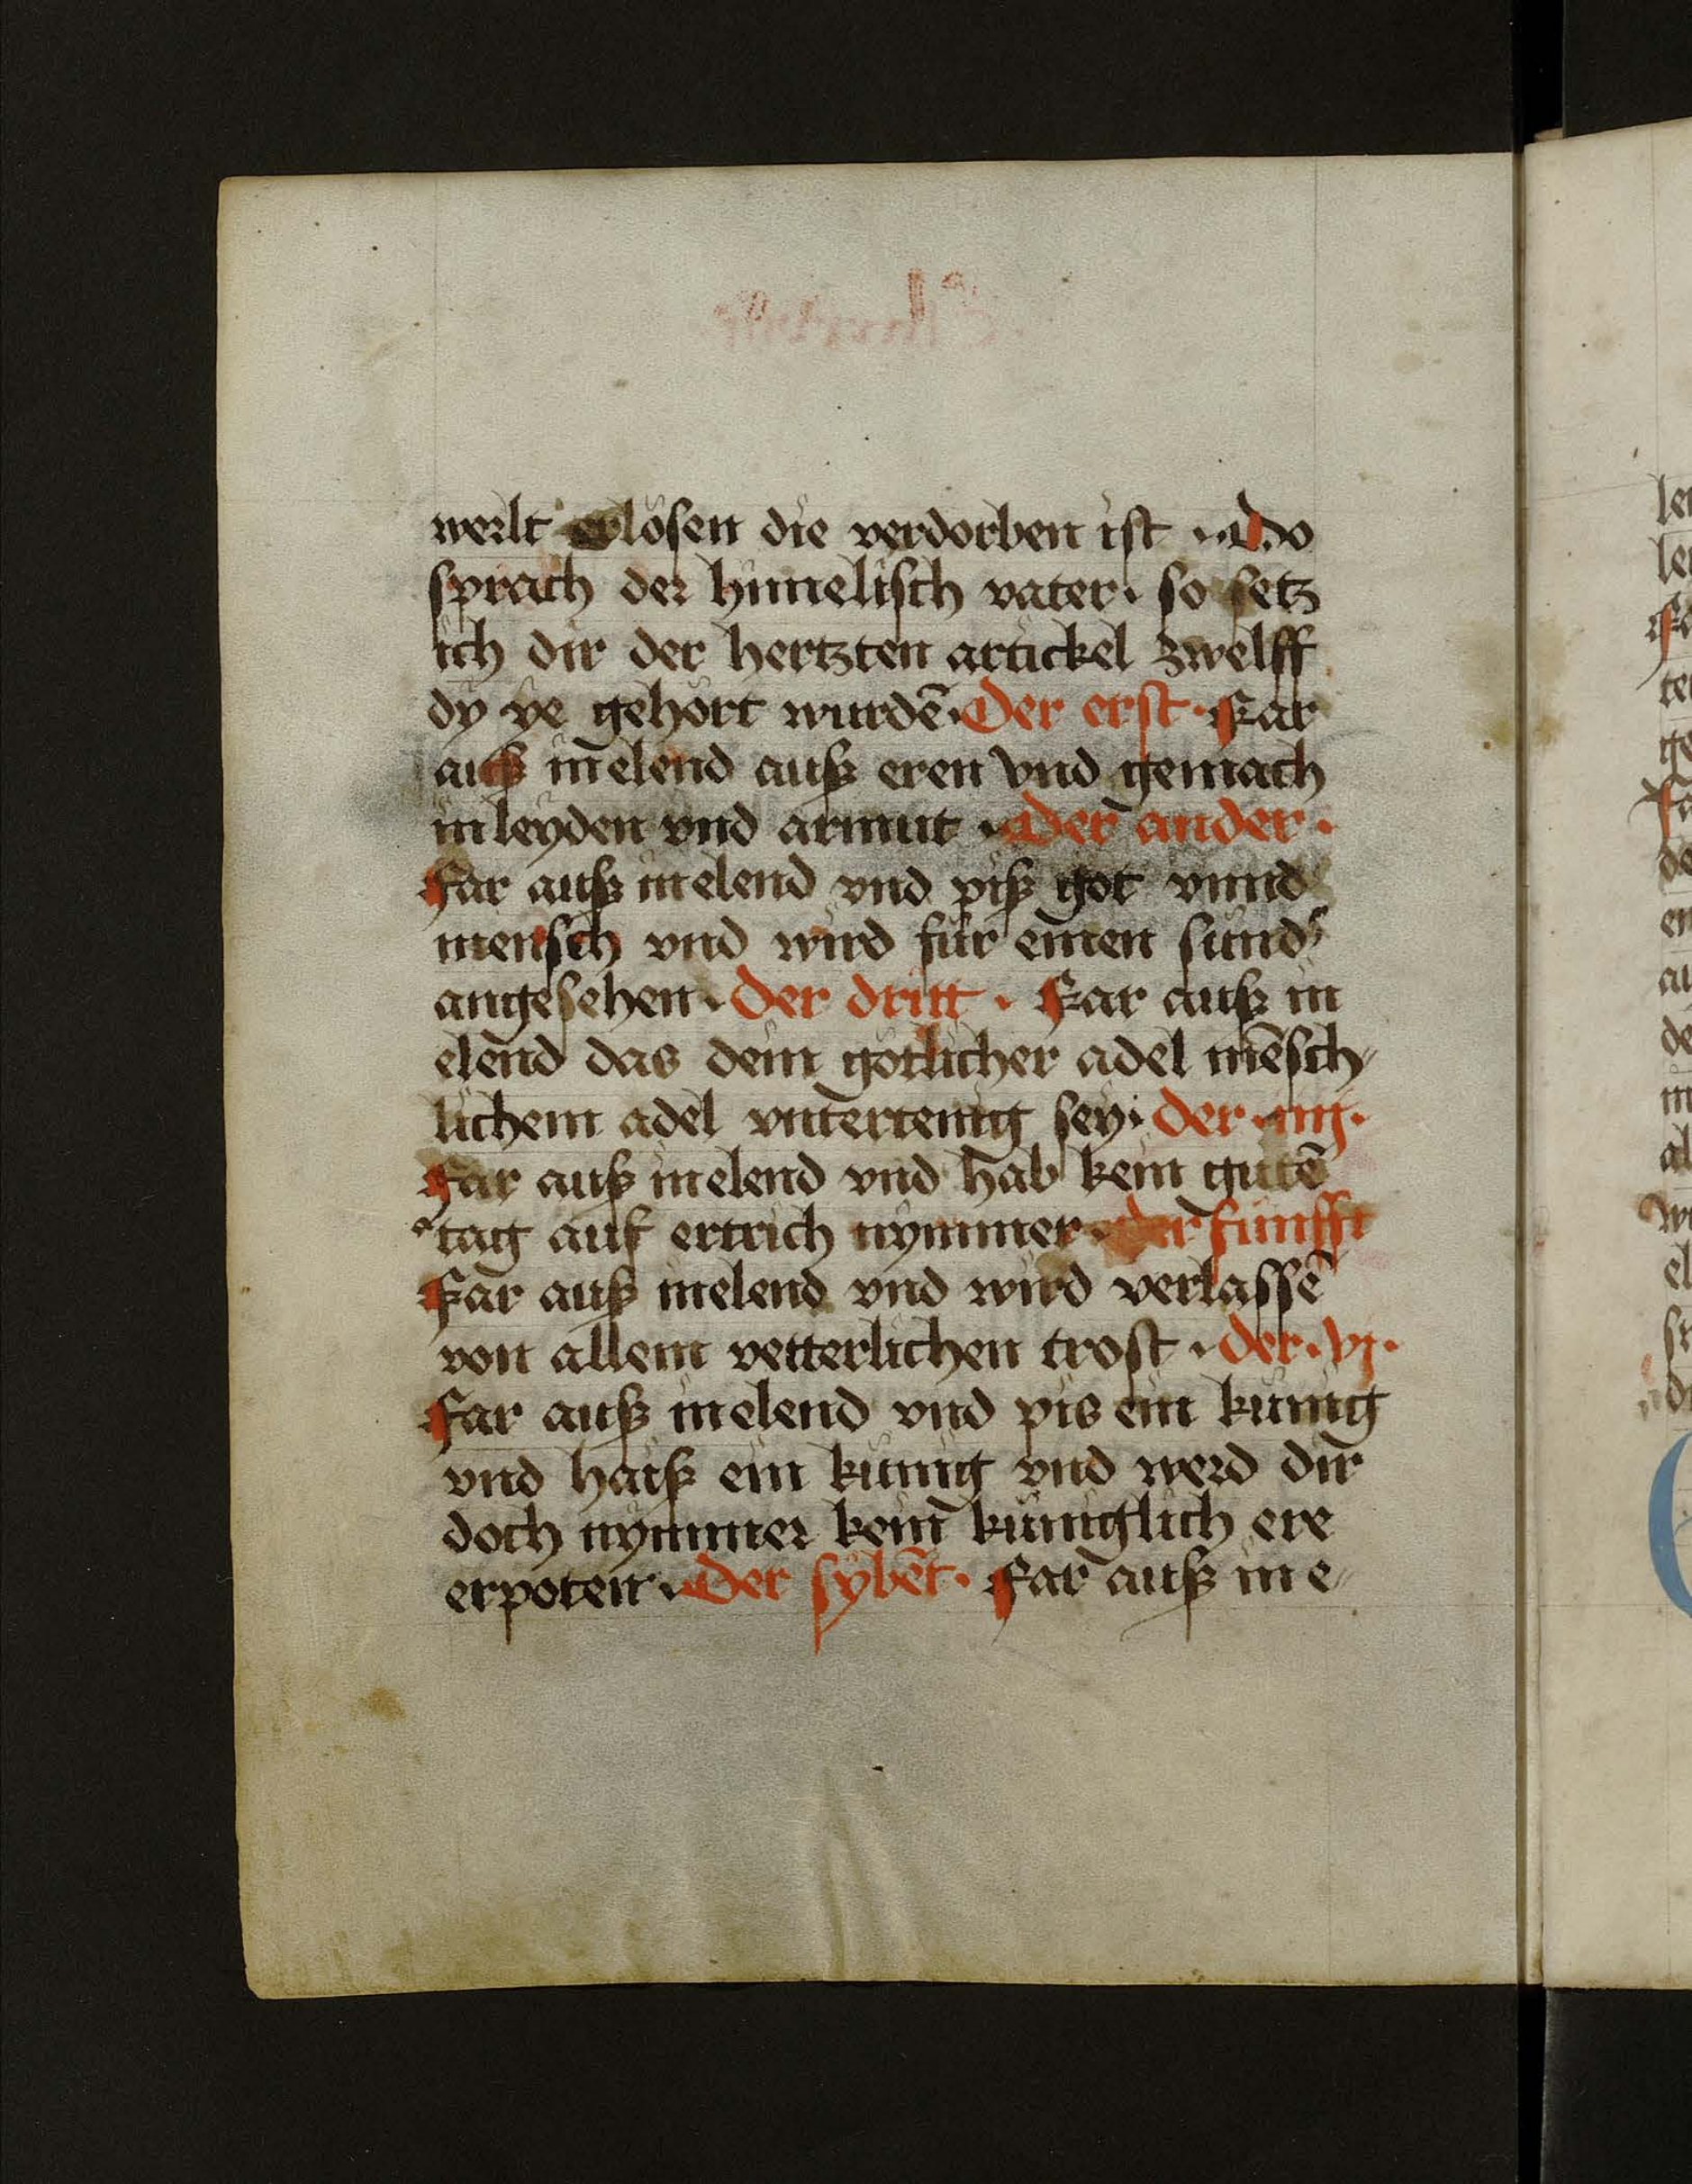 werlt erlösen die verdorben ist · Do
sprach der himelisch vater · so setz
ich dir der hertzten artickel zwelff
dy ye gehört wurdē · Der erst · Far
auß in elend auß eren vnd gemach
in leyden vnd armut · Der ander ·
Far auß in elend vnd piß got vnnd
mensch vnd wird für einen sünd
angesehen · Der dritt · Far auß in
elend das dein götlicher adel mēsch
lichem adel vntertenig sey · der · iiij ·
Far auß in elend vnd hab kein gutē
tag auf ertrich nymmer · der fünfft
Far auß in elend vnd wird verlassē
von allem vetterlichen trost · der · vj ·
Far auß in elend vnd pis ein künig
vnd haiß ein künig vnd werd dir
doch nymmer kein küniglich ere
erpoten · Der sybēt · Far auß in e